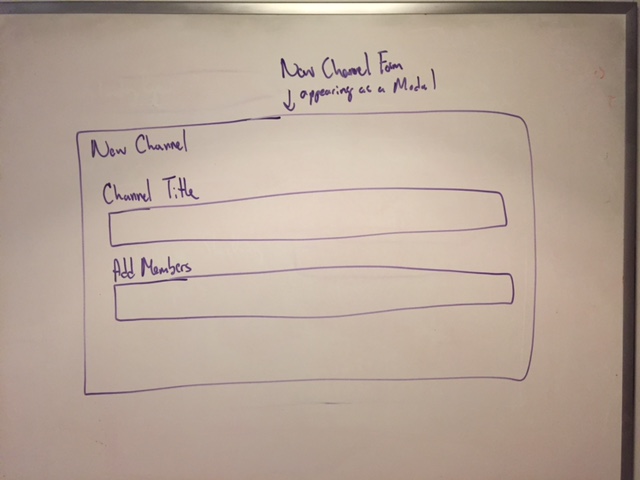 New Channel Form
↓ appearing as a Modal
New Channel
Channel Title
Add Members